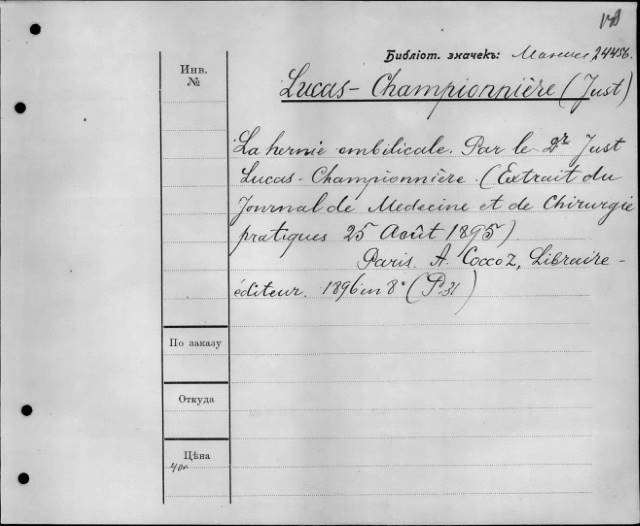 Библіот. значекъ: 24456.
Инв.
№
Lucas-Championnière (Just)
La hernie ombilicale. Par le Dr Just
Lucas-Championnière (Extrait du
Journal de Medecine et de Chirurgie
pratiques 25 Août 1895)
Paris. A. Coccoz, Libraire-
éditeur. 1896 in 8° (P. 31)
По заказу
Откуда
Цѣна